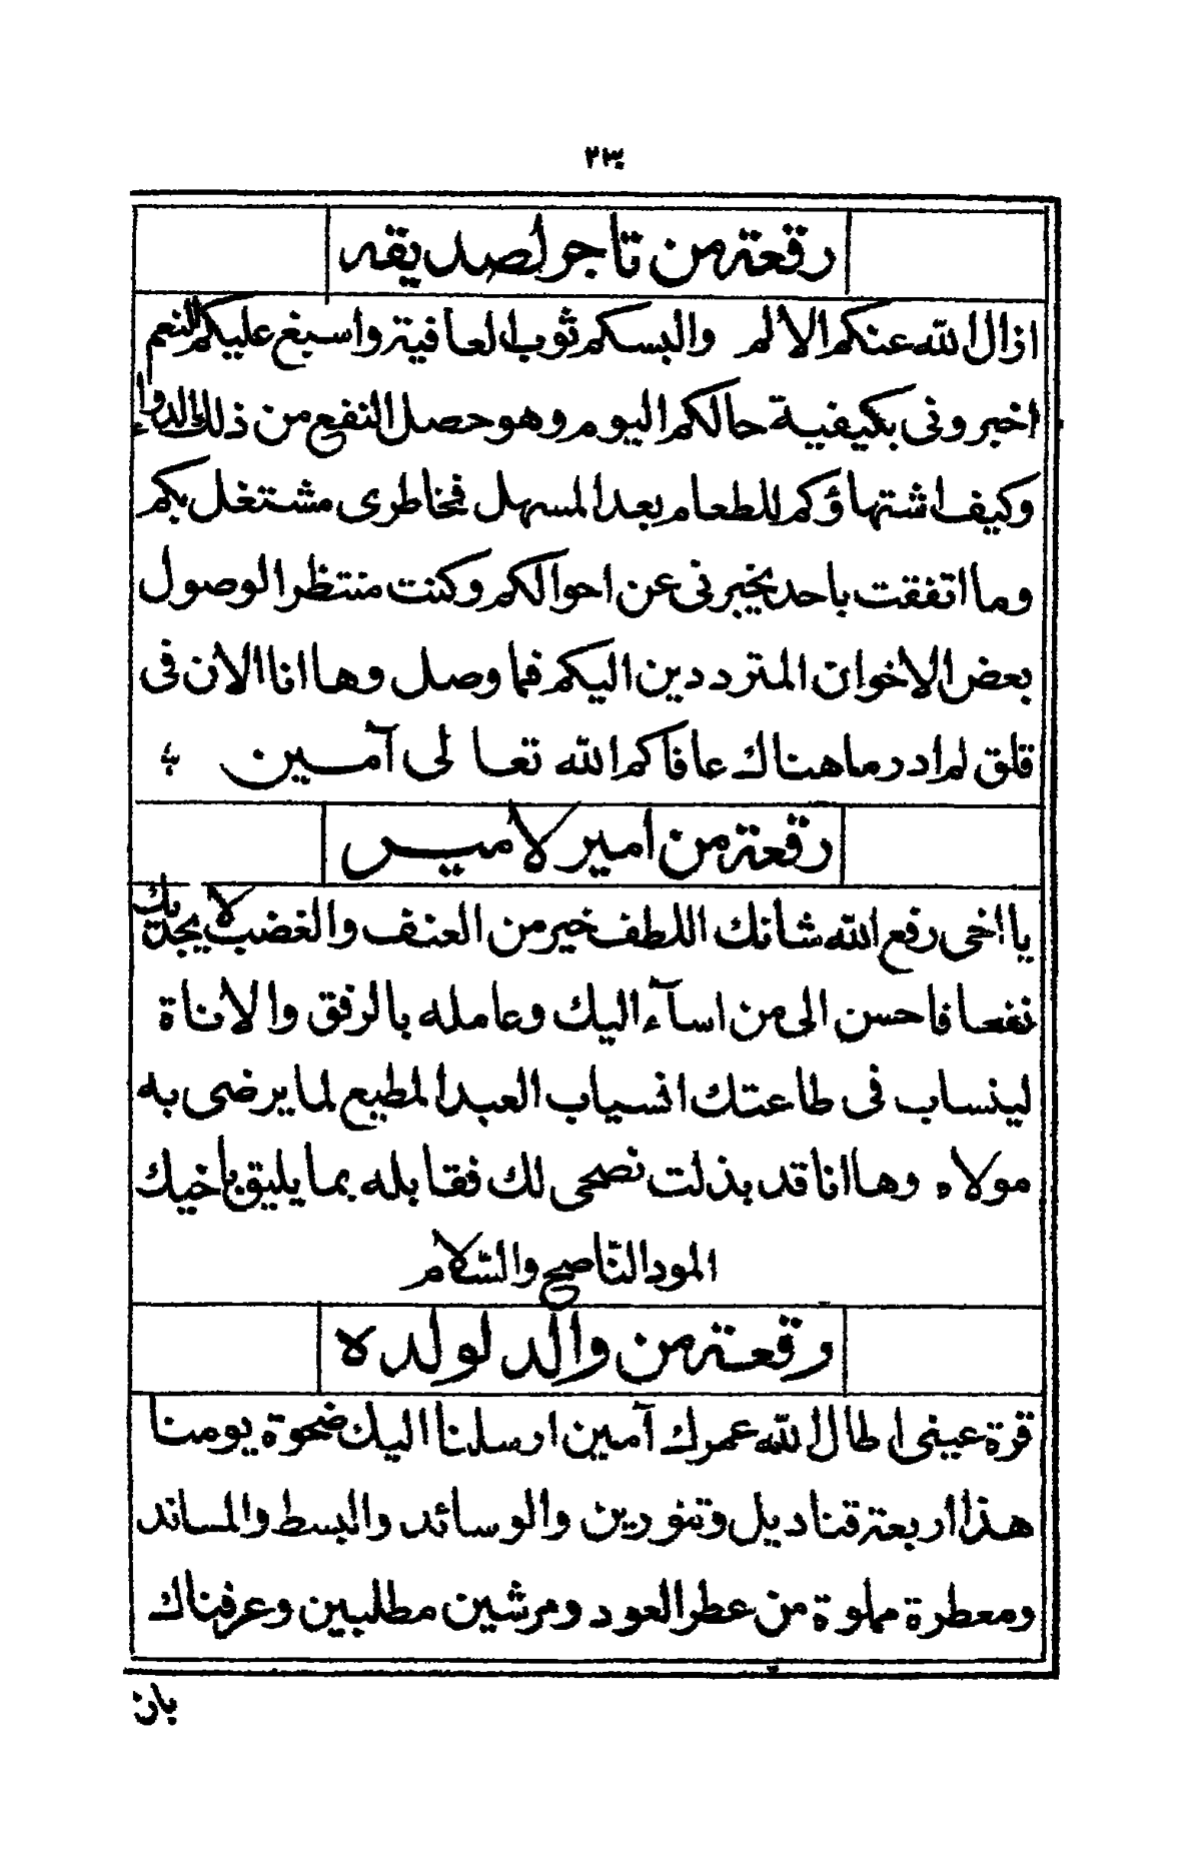 ٢٣
رقعة من تاجر لصديقه
ازال الله عنكم الالم والبسكم ثوب العافية واسبغ عليكم النعم
اخبرونى بكيفية حالكم اليوم وهو حصل النفع من ذلك الدواء
وكيف اشتهاؤكم للطعام بعد المسهل فخاطرى مشتغل بكم
وما اتفقت باحد يخبرنى عن احوالكم وكنت منتظرا لوصول
بعض الاخوان المترددين اليكم فما وصل وها انا الان فى
قلق لم ادر ما هناك عافاكم الله تعالى آمين
رقعة من امير لامير
يا اخى رفع الله شانك اللطف خير من العنف والغضب لا يجديك
نفعا فاحسن الى من اسآء اليك وعامله بالرفق والاناة
لينساب فى طاعتك انسياب العبد المطيع لما يرضى به
مولاه وها انا قد بذلت نصحى لك فقابله بما يليق باخيك
المود النّاصح والسّلام
رقعة من والد لولده
قرة عينى اطال الله عمرك آمين ارسلنا اليك ضحوة يومنا
هذا اربعة قناديل وتنورين والوسائد والبسط والمساند
ومعطرة مملوة من عطر العود ومرشين مطلبين وعرفناك
بان